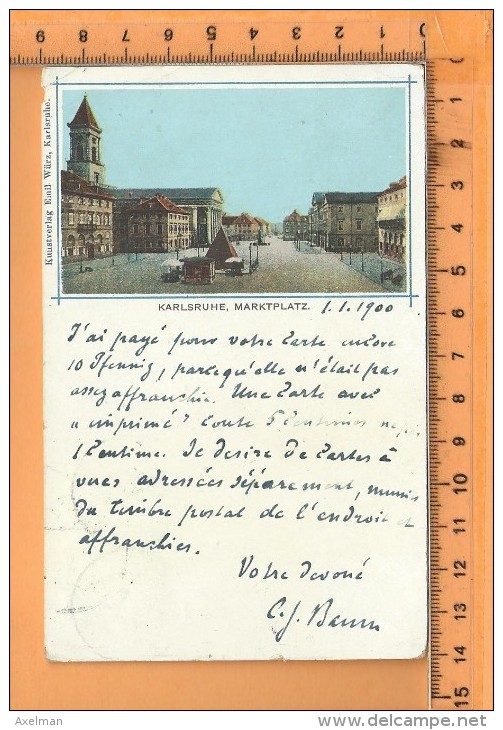 Kunstverlag Emil Würz, Karlsruhe.
KARLSRUHE, MARKTPLATZ. 1.1.1900
J'ai payé pour votre Carte encore
10 Pfennig, parcequ'elle n'était pas
assez affranchie. Une Carte avec
„imprimé" Coute 5 Centimes
1 Centime. Je desire de Cartes à
vues adressées séparement, munies
du timbre postal de l'endroit et
affranchies.
Votre devoué
C. J. Baum
9 8 7 6 5 4 3 2 1 0
1
2
3
4
5
6
7
8
9
10
11
12
13
14
15
Axelman
www.delcampe.net